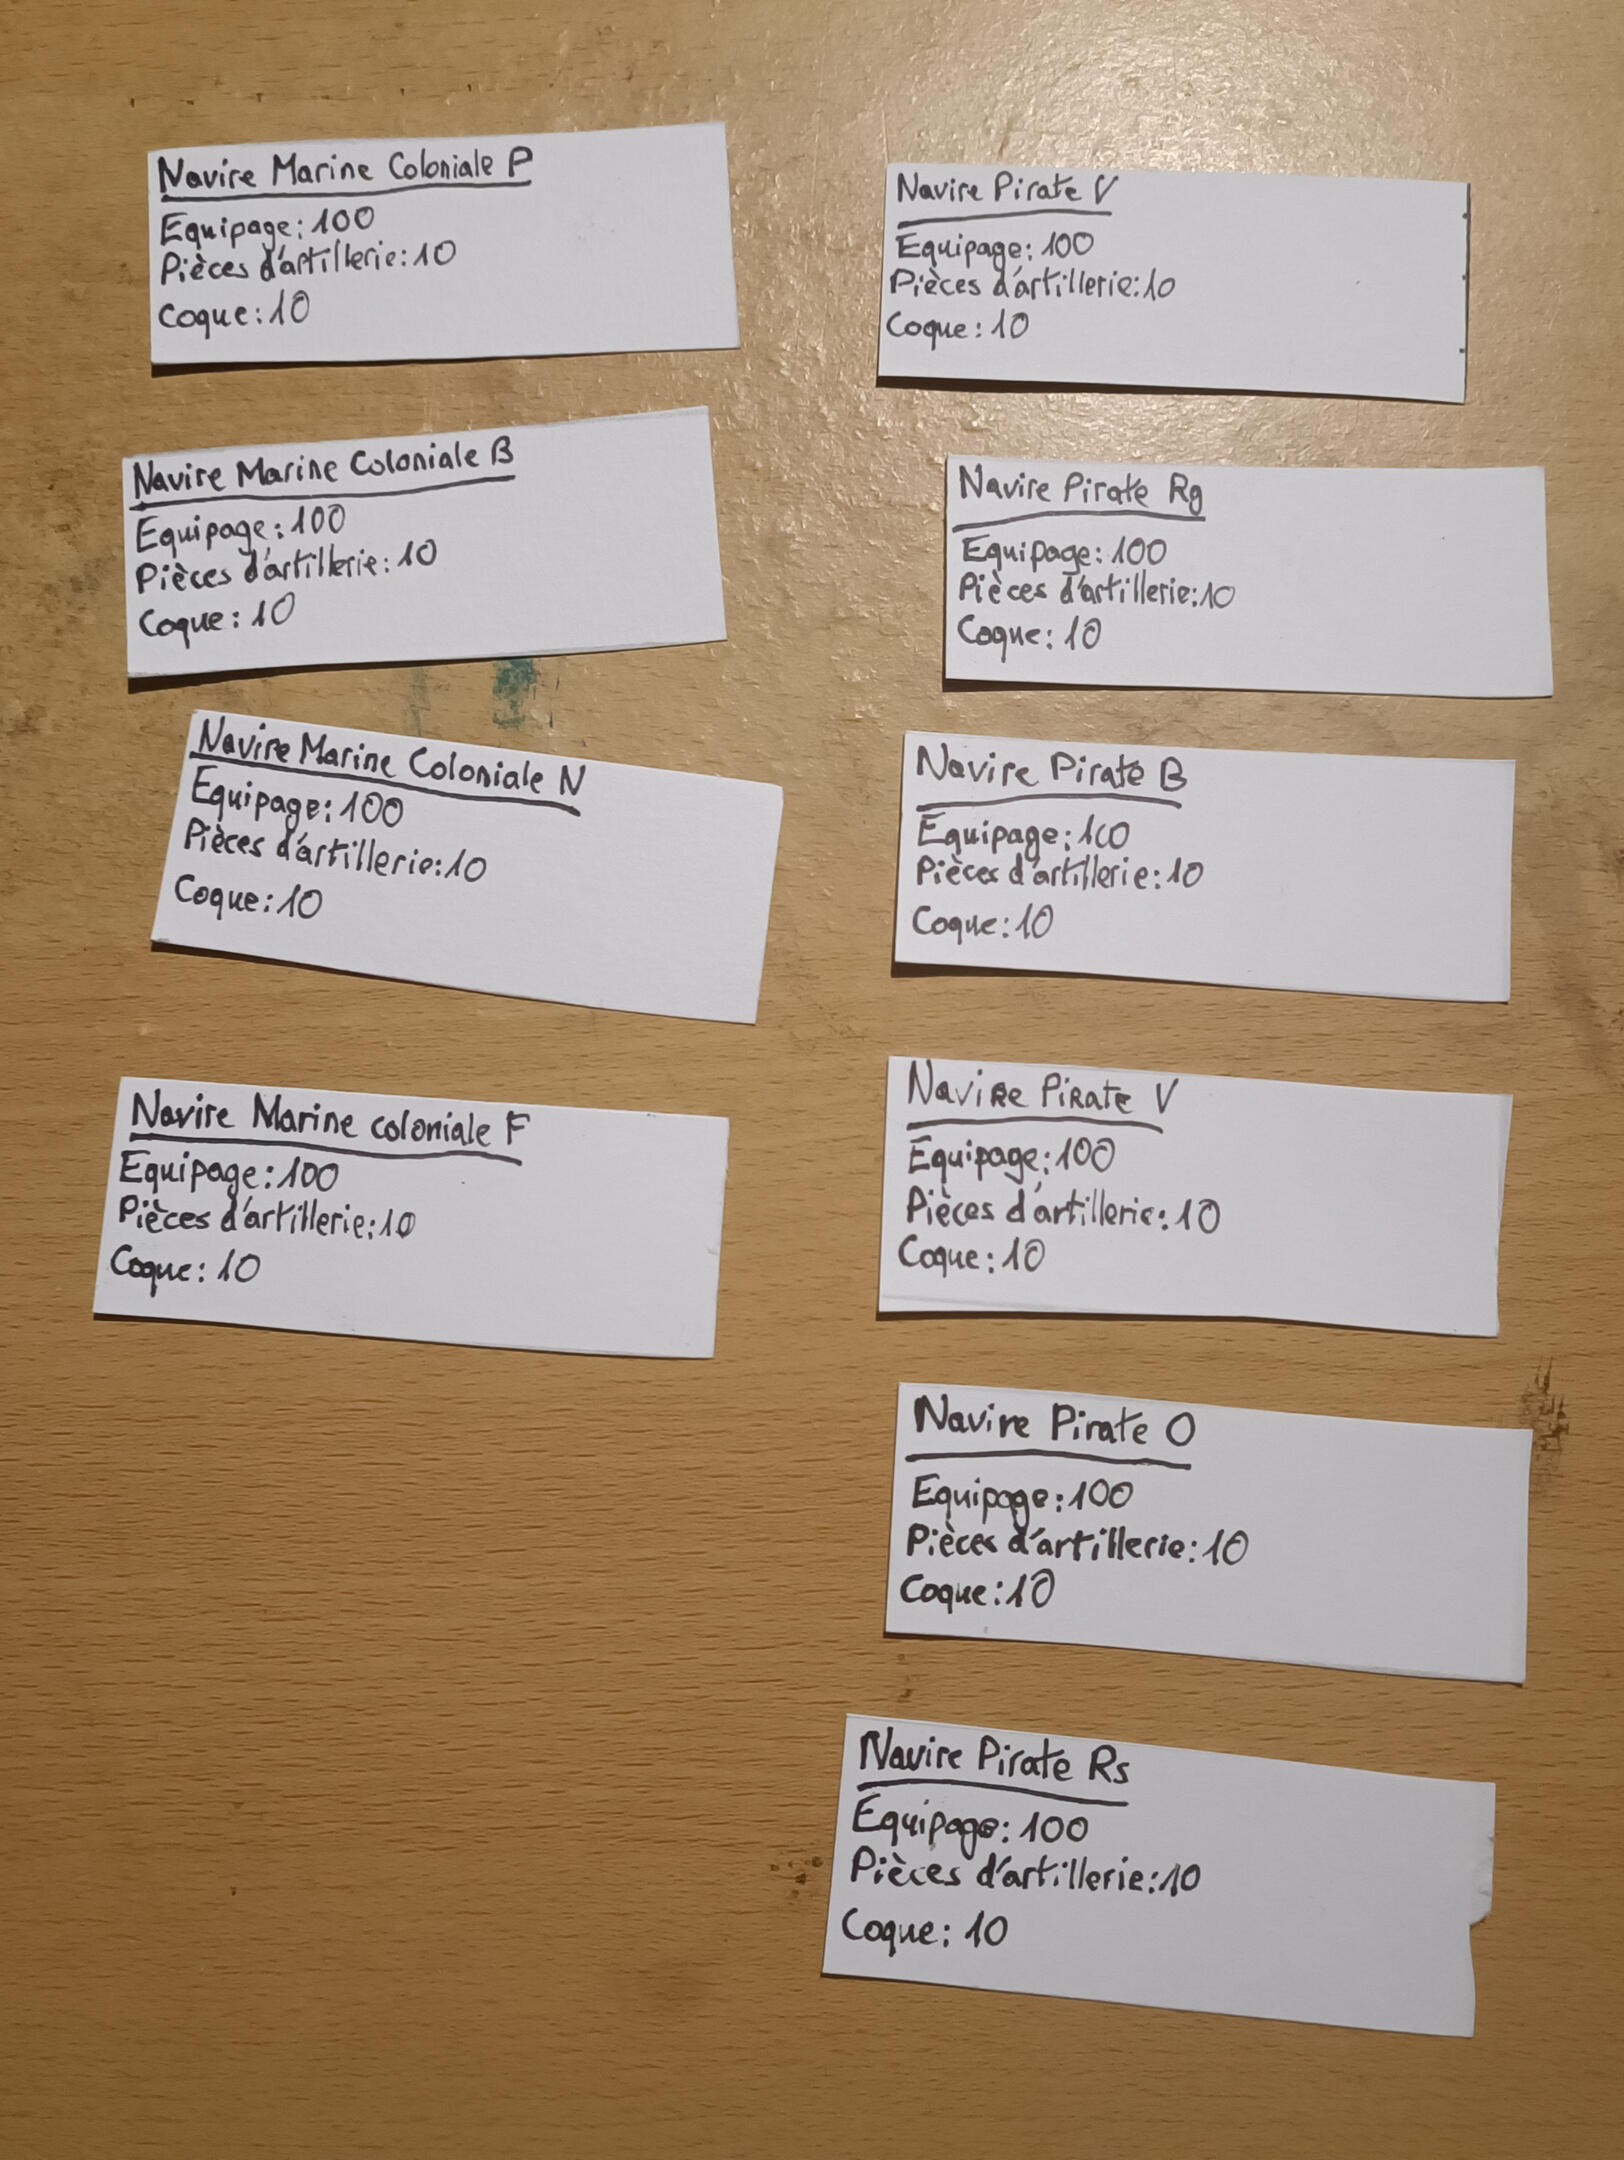 Navire Marine Coloniale P
Equipage: 100
Pièces d'artillerie: 10
Coque: 10
Navire Marine Coloniale B
Equipage: 100
Pièces d'artillerie: 10
Coque: 10
Navire Marine Coloniale N
Equipage: 100
Pièces d'artillerie: 10
Coque: 10
Navire Marine coloniale F
Equipage: 100
Pièces d'artillerie: 10
Coque: 10
Navire Pirate V
Equipage: 100
Pièces d'artillerie: 10
Coque: 10
Navire Pirate Rg
Equipage: 100
Pièces d'artillerie: 10
Coque: 10
Navire Pirate B
Equipage: 100
Pièces d'artillerie: 10
Coque: 10
Navire Pirate V
Equipage: 100
Pièces d'artillerie: 10
Coque: 10
Navire Pirate O
Equipage: 100
Pièces d'artillerie: 10
Coque: 10
Navire Pirate Rs
Equipage: 100
Pièces d'artillerie: 10
Coque: 10